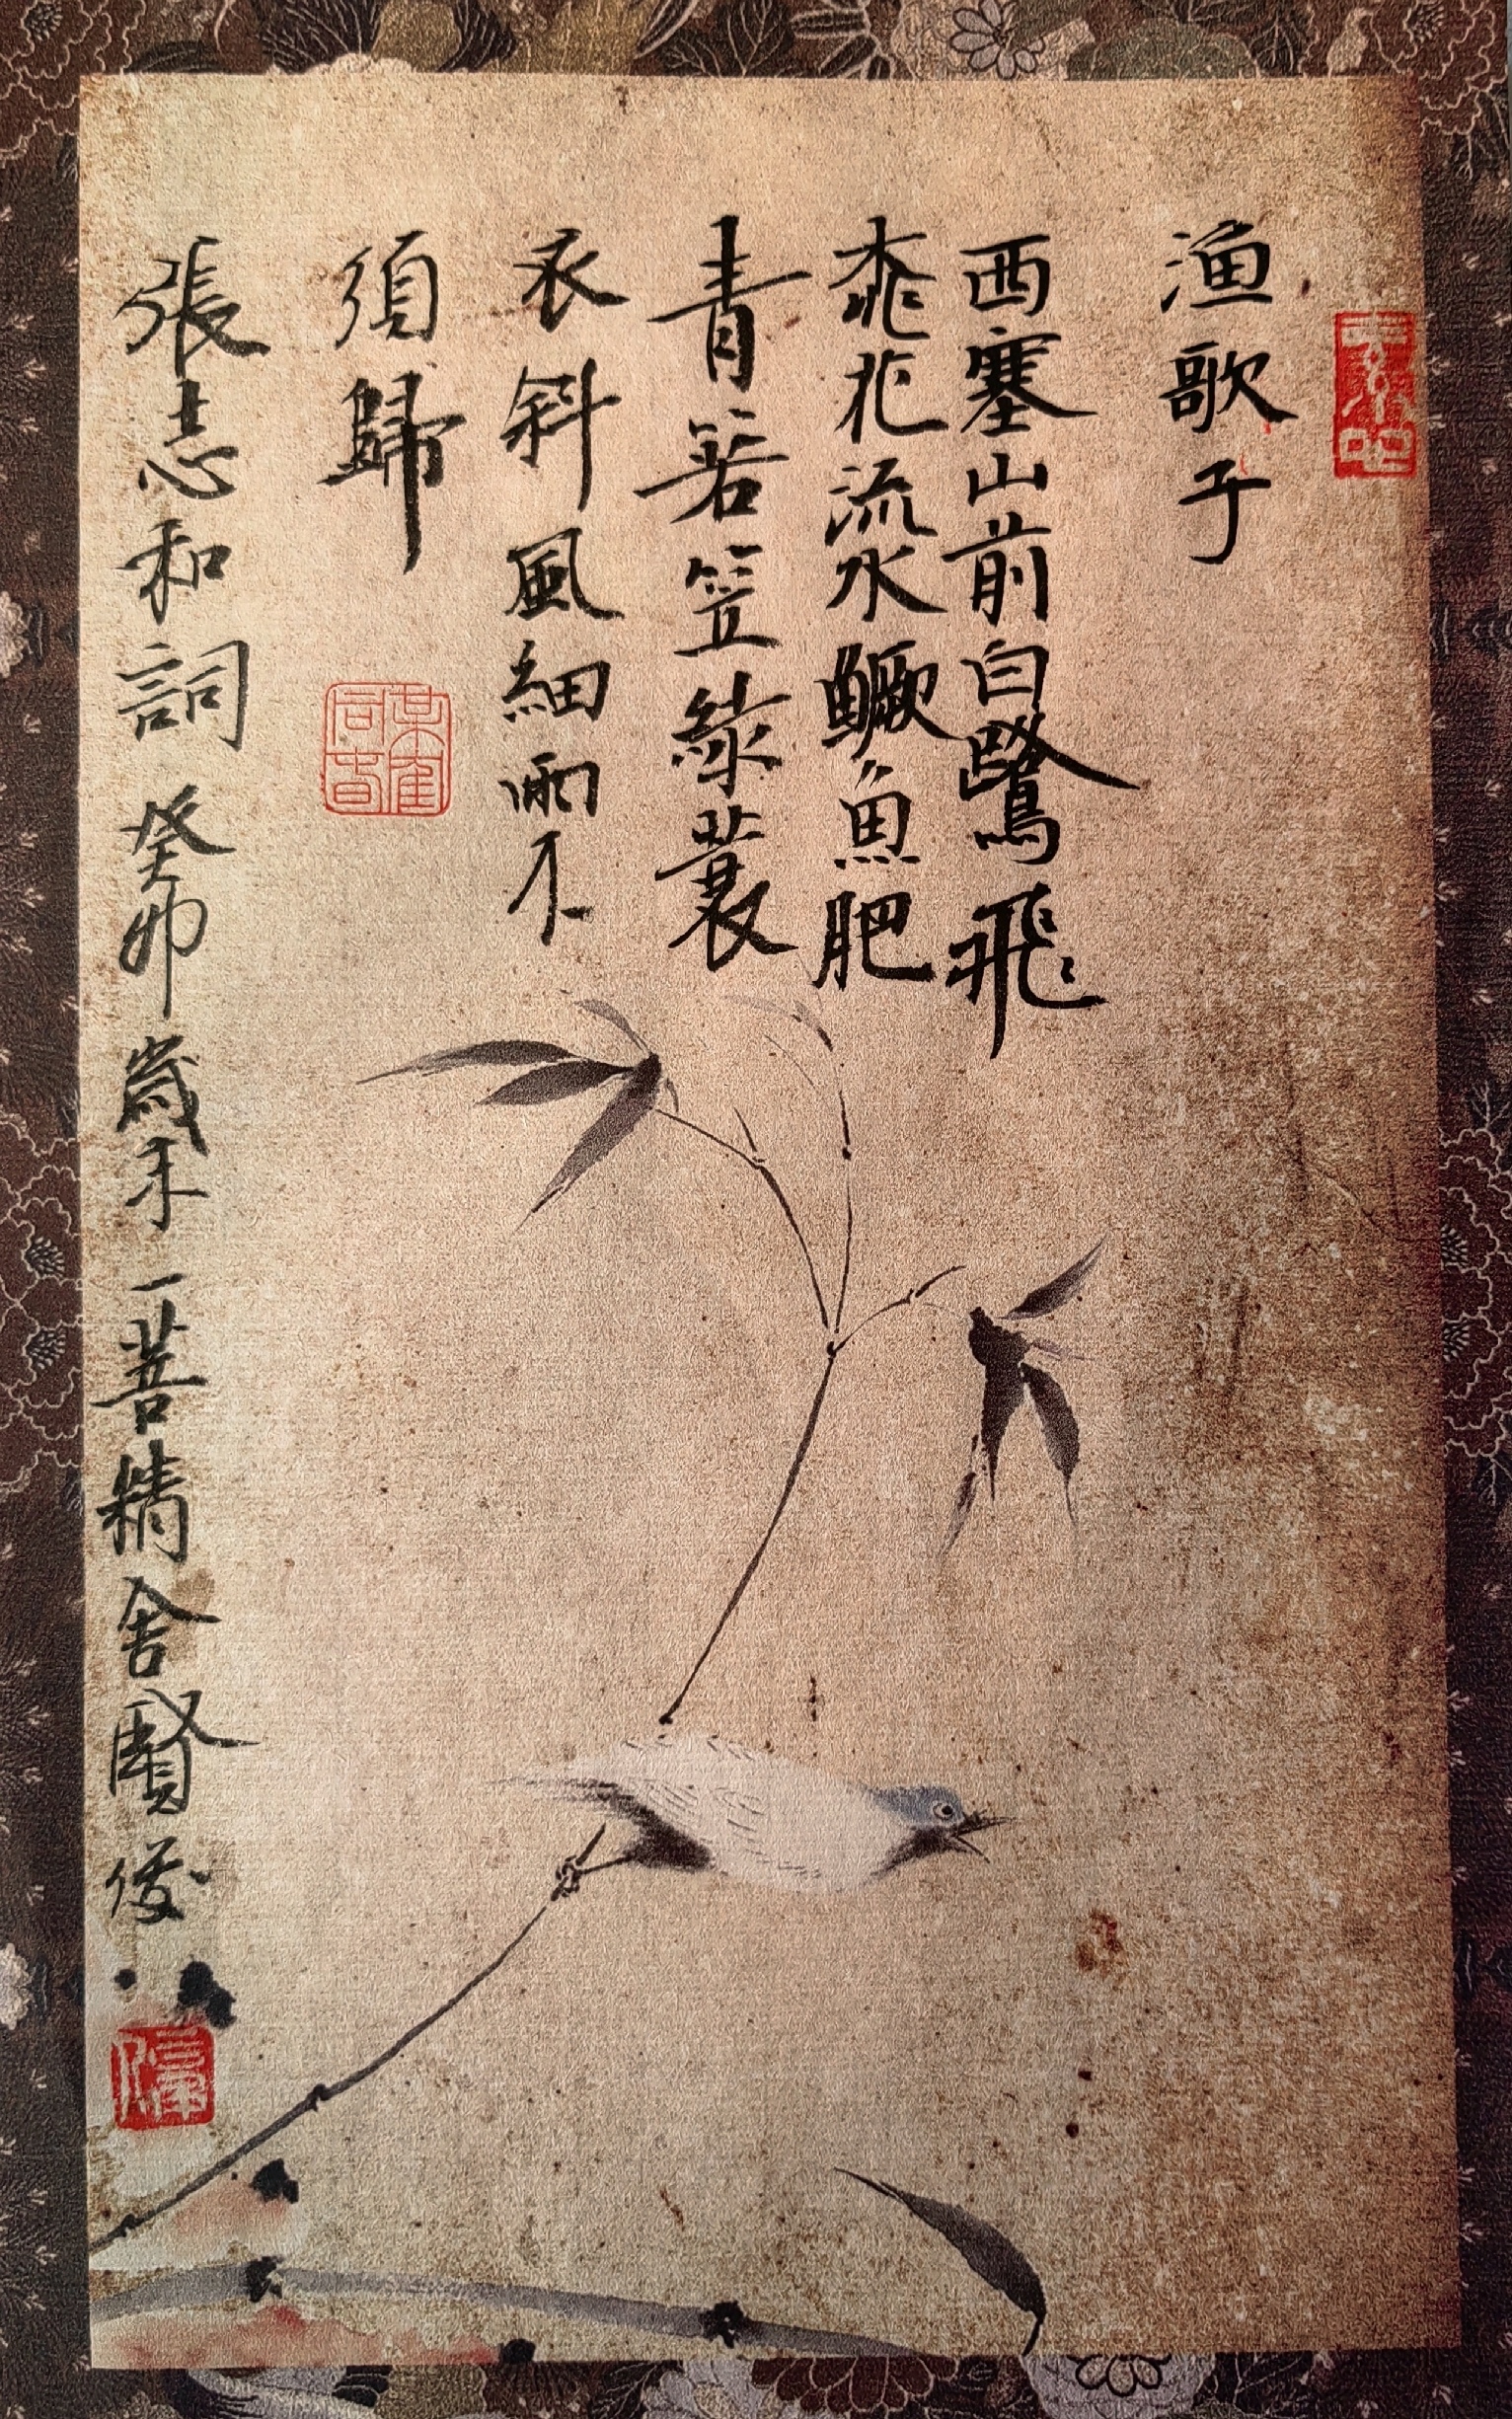 渔歌子
西塞山前白鷺飛
桃花流水鱖魚肥
青箬笠綠蓑
衣斜風細雨不
須歸
張志和詞 癸卯歲末一菩精舍賢俊